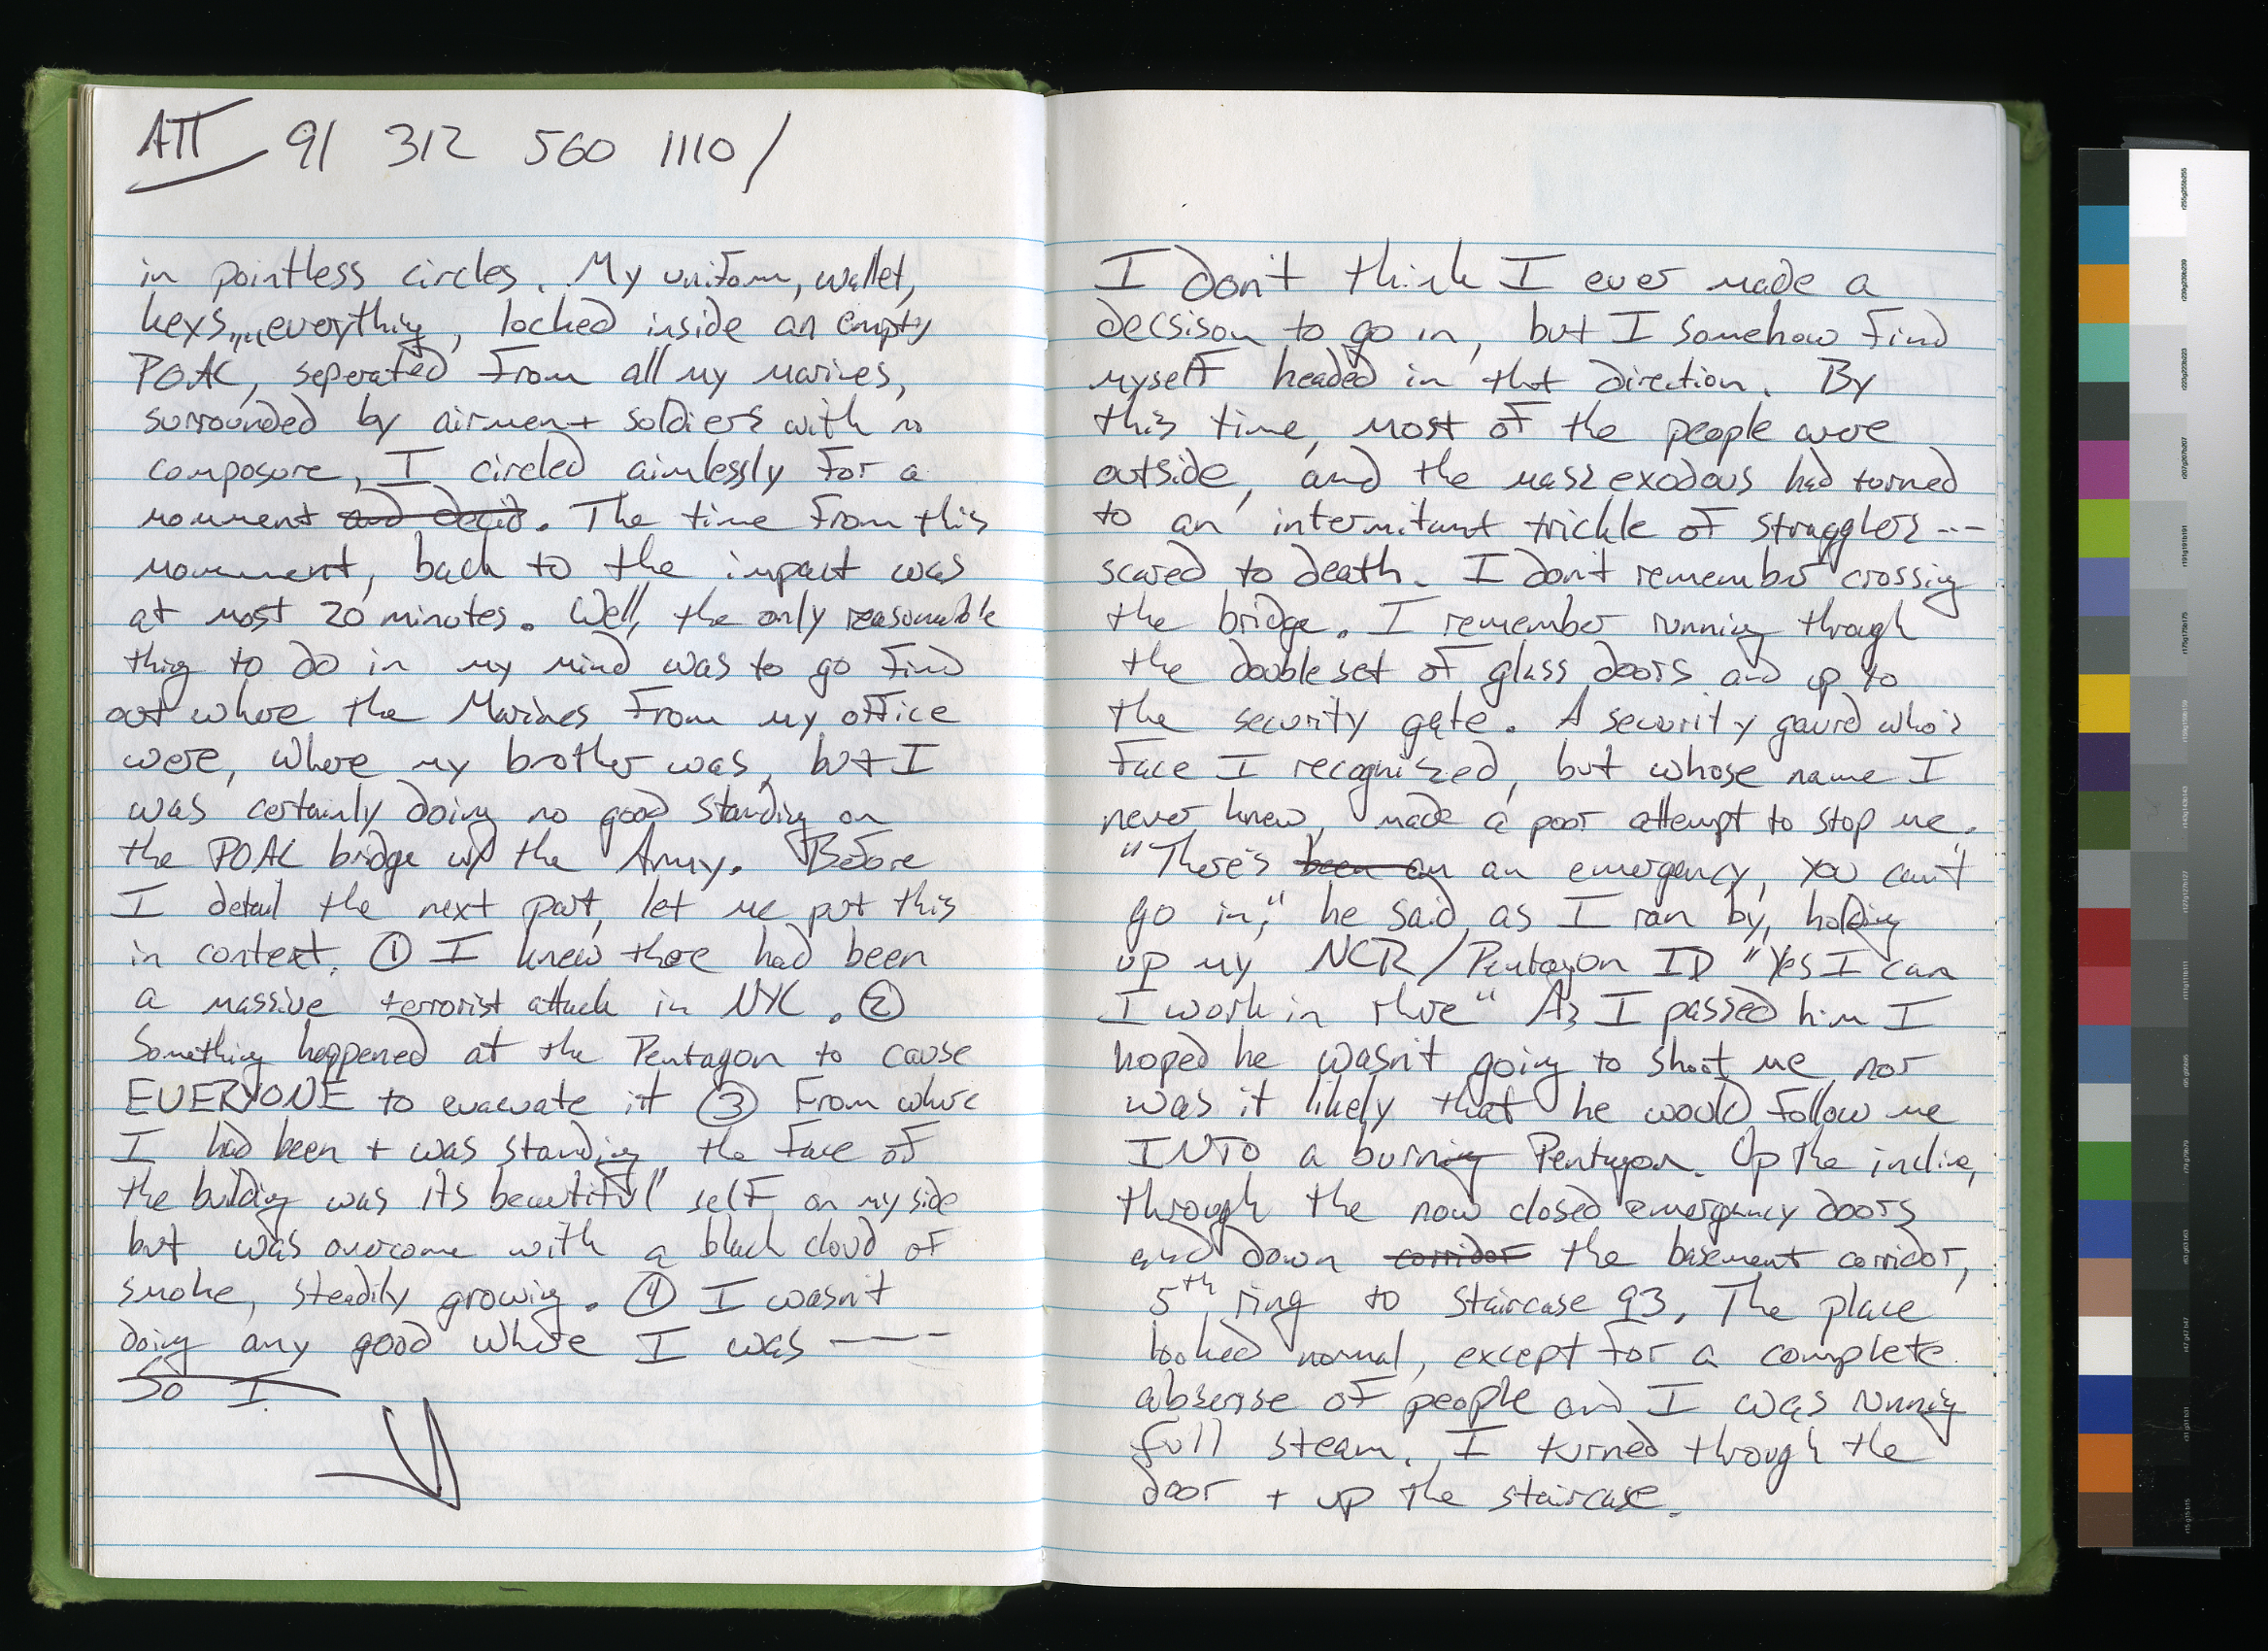 ATT 91 312 560 1110/
in pointless circles. My uniform, wallet,
keys,,,,everything, locked inside an empty
POAC, seperated from all my marines,
surrounded by airmen + soldiers with no
composure, I circled aimlessly for a
momment and decid. The time from this
momment, back to the impact was
at most 20 minutes. Well, the only reasonable
thing to do in my mind was to go find
out where the Marines from my office
were, where my brother was, but I
was certainly doing no good standing on
the POAC bridge w/ the Army. Before
I detail the next part, let me put this
in context. ① I knew there had been
a massive terrorist attack in NYC. ②
Something happened at the Pentagon to cause
EVERYONE to evacuate it ③ From where
I had been + was standing the face of
the building was its beautiful self on my side
but was overcome with a black cloud of
smoke, steadily growing. ④ I wasn't
doing any good where I was ----
So I
I don't think I ever made a
decsison to go in, but I somehow find
myself headed in that direction. By
this time, most of the people were
outside, and the mass exodous had turned
to an intermitant trickle of stragglers ---
scared to death. I don't remember crossing
the bridge. I remember running through
the double set of glass doors and up to
the security gate. A security gaurd who's
face I recognized, but whose name I
never knew, made a poor attempt to stop me.
"There's been an an emergency, you can't
go in," he said, as I ran by, holding
up my NCR/Pentagon ID "Yes I can
I work in there" As I passed him I
hoped he wasn't going to shoot me nor
was it likely that he would follow me
INTO a burning Pentagon. Up the incline,
through the now closed emergency doors
and down corridor the basement corridor,
5th ring to staircase 93. The place
looked normal, except for a complete
absense of people and I was running
full steam. I turned through the
door + up the staircase.